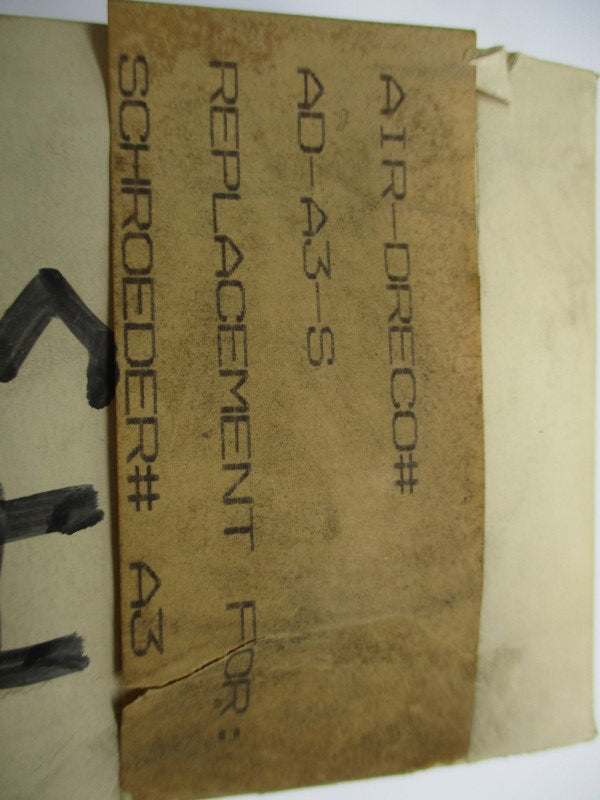 AIR-DRECO#
AD-A3-S
REPLACEMENT FOR:
SCHROEDER# A3